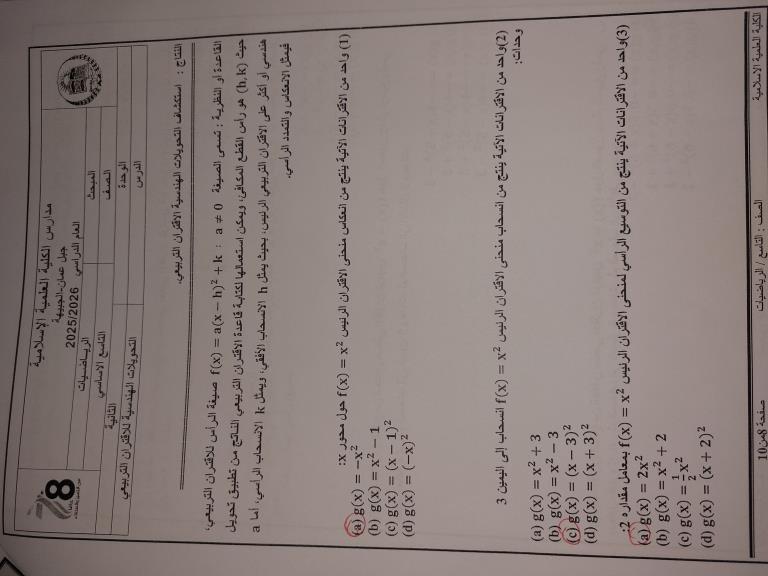 مدارس الكلية العلمية الإسلامية
جبل عمان-الجبيهة
العام الدراسي 2025/2026
المبحث الرياضيات
الصف التاسع الاساسي
الوحدة الثانية
الدرس التحويلات الهندسية للاقتران التربيعي
النتاج : استكشاف التحويلات الهندسية الاقتران التربيعي.
القاعدة أو النظرية : تسمى الصيغة f(x) = a(x − h)² + k : a ≠ 0 صيغة الرأس للاقتران التربيعي،
حيث (h, k) هو رأس القطع المكافئ، ويمكن استعمالها لكتابة قاعدة الاقتران التربيعي الناتج من تطبيق تحويل
هندسي أو أكثر على الاقتران التربيعي الرئيس، بحيث يمثل h الانسحاب الأفقي، ويمثل k الانسحاب الرأسي، أما a
فيمثل الانعكاس والتمدد الرأسي.
(1) واحد من الاقترانات الآتية ينتج من انعكاس منحنى الاقتران الرئيس f(x) = x² حول محور x:
(a) g(x) = −x²
(b) g(x) = x² − 1
(c) g(x) = (x − 1)²
(d) g(x) = (−x)²
(2)واحد من الاقترانات الآتية ينتج من انسحاب منحنى الاقتران الرئيس f(x) = x² انسحاب إلى اليمين 3
وحدات:
(a) g(x) = x² + 3
(b) g(x) = x² − 3
(c) g(x) = (x − 3)²
(d) g(x) = (x + 3)²
(3)واحد من الاقترانات الآتية ينتج من التوسيع الرأسي لمنحنى الاقتران الرئيس f(x) = x² بمعامل مقداره 2:
(a) g(x) = 2x²
(b) g(x) = x² + 2
(c) g(x) = ½x²
(d) g(x) = (x + 2)²
الكلية العلمية الاسلامية الصف : التاسع / الرياضيات صفحة 8من10